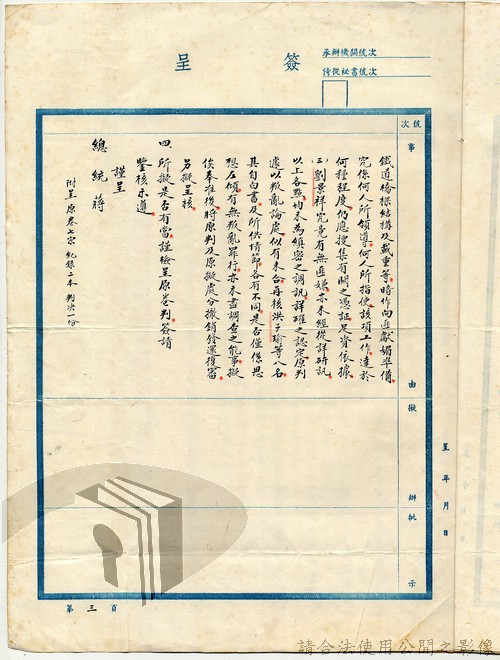 簽呈
承辦機關號次
侍從祕書號次
號次
事由
擬辦
批示
鐵道橋樑結構及載重等暗作向匪獻媚準備
究係何人所領導何人所指使該項工作達於
何種程度仍應搜集有關之憑証足資依據
㈢劉景祥究竟有無匪嫌亦未經從詳研訊
以上各點均未為縝密之調訊詳確之認定原判
遽以叛亂論處似有未合再核洪子瑜等八名
具有自白書及所供情節各有不同是否僅係思
想左傾有無叛亂罪行亦未盡調查之能事擬
俟奉准後將原判及原擬處分撤銷發還復審
另擬呈核
四、所擬是否有當謹檢呈原卷判簽請
鑒核示遵
謹呈
總統蔣
附呈原卷七宗紀錄二本判決一份
呈 年 月 日
第三頁
請合法使用公開之影像